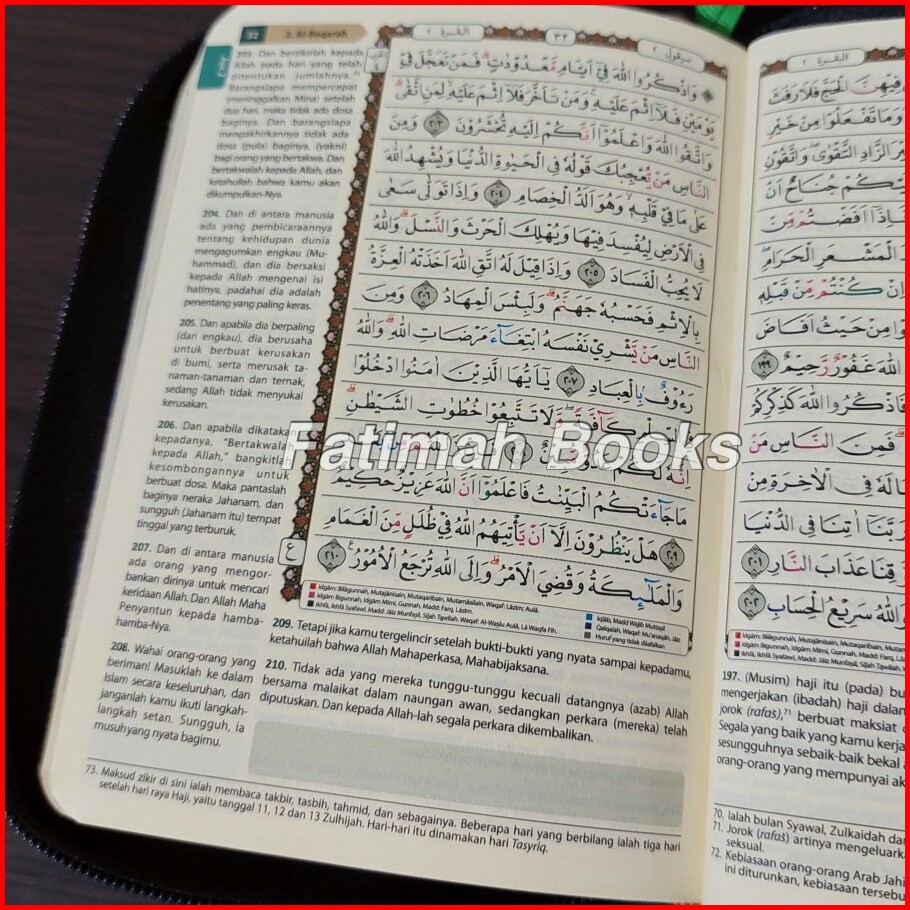 32
2. Al-Baqarah
البقرة ٢
٣٢
سيقول ٢
203. Dan berzikirlah kepada
Allah pada hari yang telah
ditentukan jumlahnya.⁷³
Barangsiapa mempercepat
(meninggalkan Mina) setelah
dua hari, maka tidak ada dosa
baginya. Dan barangsiapa
mengakhirkannya tidak ada
dosa (pula) baginya, (yakni)
bagi orang yang bertakwa. Dan
bertakwalah kepada Allah, dan
ketahuilah bahwa kamu akan
dikumpulkan-Nya.
204. Dan di antara manusia
ada yang pembicaraannya
tentang kehidupan dunia
mengagumkan engkau (Mu-
hammad), dan dia bersaksi
kepada Allah mengenai isi
hatinya, padahal dia adalah
penentang yang paling keras.
205. Dan apabila dia berpaling
(dari engkau), dia berusaha
untuk berbuat kerusakan
di bumi, serta merusak ta-
naman-tanaman dan ternak,
sedang Allah tidak menyukai
kerusakan.
206. Dan apabila dikatakan
kepadanya, "Bertakwalah
kepada Allah," bangkitlah
kesombongannya untuk
berbuat dosa. Maka pantaslah
baginya neraka Jahanam, dan
sungguh (Jahanam itu) tempat
tinggal yang terburuk.
207. Dan di antara manusia
ada orang yang mengor-
bankan dirinya untuk mencari
keridaan Allah. Dan Allah Maha
Penyantun kepada hamba-
hamba-Nya.
208. Wahai orang-orang yang
beriman! Masuklah ke dalam
Islam secara keseluruhan, dan
janganlah kamu ikuti langkah-
langkah setan. Sungguh, ia
musuh yang nyata bagimu.
وَاذْكُرُوا اللّٰهَ فِيْٓ اَيَّامٍ مَّعْدُوْدٰتٍ ۗ فَمَنْ تَعَجَّلَ فِيْ
يَوْمَيْنِ فَلَآ اِثْمَ عَلَيْهِ ۚ وَمَنْ تَاَخَّرَ فَلَآ اِثْمَ عَلَيْهِ ۙ لِمَنِ اتَّقٰى ۗ
وَاتَّقُوا اللّٰهَ وَاعْلَمُوْٓا اَنَّكُمْ اِلَيْهِ تُحْشَرُوْنَ ٢٠٣ وَمِنَ
النَّاسِ مَنْ يُّعْجِبُكَ قَوْلُهٗ فِى الْحَيٰوةِ الدُّنْيَا وَيُشْهِدُ اللّٰهَ
عَلٰى مَا فِيْ قَلْبِهٖ ۙ وَهُوَ اَلَدُّ الْخِصَامِ ٢٠٤ وَاِذَا تَوَلّٰى سَعٰى
فِى الْاَرْضِ لِيُفْسِدَ فِيْهَا وَيُهْلِكَ الْحَرْثَ وَالنَّسْلَ ۗ وَاللّٰهُ
لَا يُحِبُّ الْفَسَادَ ٢٠٥ وَاِذَا قِيْلَ لَهُ اتَّقِ اللّٰهَ اَخَذَتْهُ الْعِزَّةُ
بِالْاِثْمِ فَحَسْبُهٗ جَهَنَّمُ ۗ وَلَبِئْسَ الْمِهَادُ ٢٠٦ وَمِنَ
النَّاسِ مَنْ يَّشْرِيْ نَفْسَهُ ابْتِغَاۤءَ مَرْضَاتِ اللّٰهِ ۗ وَاللّٰهُ
رَءُوْفٌۢ بِالْعِبَادِ ٢٠٧ يٰٓاَيُّهَا الَّذِيْنَ اٰمَنُوا ادْخُلُوْا
كَاۤفَّةً ۖ وَّلَا تَتَّبِعُوْا خُطُوٰتِ الشَّيْطٰنِ ۗ
اِنَّهٗ لَكُمْ
مَا جَاۤءَتْكُمُ الْبَيِّنٰتُ فَاعْلَمُوْٓا اَنَّ اللّٰهَ عَزِيْزٌ حَكِيْمٌ
٢٠٩ هَلْ يَنْظُرُوْنَ اِلَّآ اَنْ يَّأْتِيَهُمُ اللّٰهُ فِيْ ظُلَلٍ مِّنَ الْغَمَامِ
وَالْمَلٰۤىِٕكَةُ وَقُضِيَ الْاَمْرُ ۗ وَاِلَى اللّٰهِ تُرْجَعُ الْاُمُوْرُ ٢١٠
ع
Fatimah Books
Idgām: Bilāgunnah, Mutajānisain, Mutaqaribain, Mutamāsilain. Waqaf: Lāzim; Aulā.
Idgām Bigunnah, Idgām Mimi, Gunnah, Madd: Farq, Lāzim.
Ikhfā, Ikhfā Syafawi, Madd: Jāiz Munfaṣil, Ṣilah Ṭawīlah. Waqaf: Al-Waṣlu Aulā, Lā Waqfa Fih.
Iqlāb, Madd Wājib Muttaṣil
Qalqalah. Waqaf: Mu'ānaqah, Jāiz
Huruf yang tidak dilafalkan
209. Tetapi jika kamu tergelincir setelah bukti-bukti yang nyata sampai kepadamu,
ketahuilah bahwa Allah Mahaperkasa, Mahabijaksana.
210. Tidak ada yang mereka tunggu-tunggu kecuali datangnya (azab) Allah
bersama malaikat dalam naungan awan, sedangkan perkara (mereka) telah
diputuskan. Dan kepada Allah-lah segala perkara dikembalikan.
73. Maksud zikir di sini ialah membaca takbir, tasbih, tahmid, dan sebagainya. Beberapa hari yang berbilang ialah tiga hari
setelah hari raya Haji, yaitu tanggal 11, 12 dan 13 Zulhijah. Hari-hari itu dinamakan hari Tasyriq.
البقرة ٢
فِيْهِنَّ الْحَجَّ فَلَا رَفَثَ
وَمَا تَفْعَلُوْا مِنْ خَيْرٍ
الزَّادِ التَّقْوٰى ۖ وَاتَّقُوْنِ
جُنَاحٌ اَنْ
فَاِذَآ اَفَضْتُمْ مِّنْ
الْمَشْعَرِ الْحَرَامِ ۖ
كُنْتُمْ مِّنْ قَبْلِهٖ
مِنْ حَيْثُ اَفَاضَ
اللّٰهَ غَفُوْرٌ رَّحِيْمٌ ١٩٩
فَاذْكُرُوا اللّٰهَ كَذِكْرِكُمْ
فَمِنَ النَّاسِ مَنْ
لَهٗ فِى الْاٰخِرَةِ مِنْ
رَبَّنَآ اٰتِنَا فِى الدُّنْيَا
وَّقِنَا عَذَابَ النَّارِ ٢٠١
وَاللّٰهُ سَرِيْعُ الْحِسَابِ ٢٠٢
Idgām: Bilāgunnah, Mutajānisain, Mutaqaribain, Mutam
Idgām Bigunnah, Idgām Mimi, Gunnah, Madd: Farq, Lāzim
Ikhfā, Ikhfā Syafawi, Madd: Jāiz Munfaṣil, Ṣilah Ṭawīlah. W
197. (Musim) haji itu (pada) bu
mengerjakan (ibadah) haji dalam
jorok (rafas),⁷¹ berbuat maksiat
Segala yang baik yang kamu kerja
sesungguhnya sebaik-baik bekal
orang-orang yang mempunyai ak
70. Ialah bulan Syawal, Zulkaidah dan
71. Jorok (rafaṡ) artinya mengeluark
seksual.
72. Kebiasaan orang-orang Arab Jahi
ini diturunkan, kebiasaan tersebu